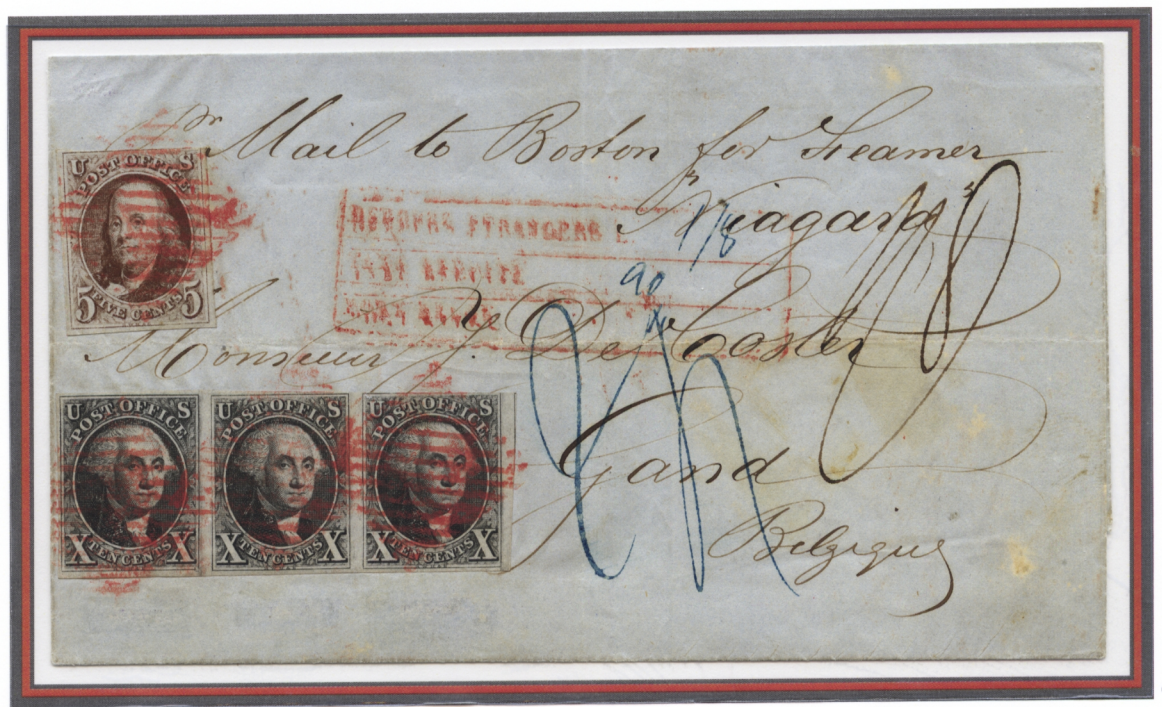 pr Mail to Boston for Steamer
Niagara
U S
POST OFFICE
5 FIVE CENTS 5
178
90
Monsieur J. De Coster
Gand
Belgique
U S
POST OFFICE
X TEN CENTS X
U S
POST OFFICE
X TEN CENTS X
U S
POST OFFICE
X TEN CENTS X